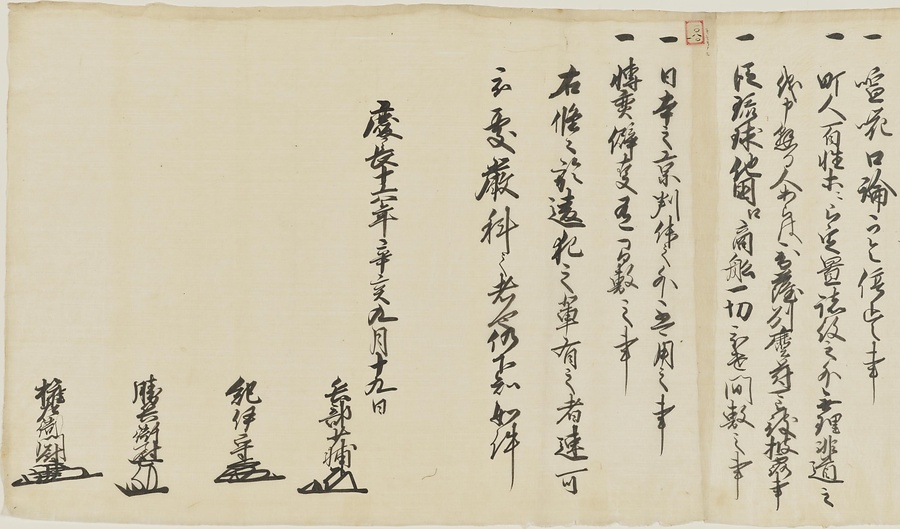 一 喧嘩口論可令停止之事
一 町人百姓等ニ被定置諸役之外無理非道之
儀申懸る人あらは到薩州麑府可被致披露事
一 従琉球他国江商船一切被遣間敷之事
一 日本之京判升之外不可用之事
一 博奕僻事有間敷之事
右條々於違犯之輩有之者速可
被處嚴科之者也仍下知如件
慶長十六年辛亥九月十九日
兵部少輔
紀伊守
勝兵衛尉
権左衛門尉